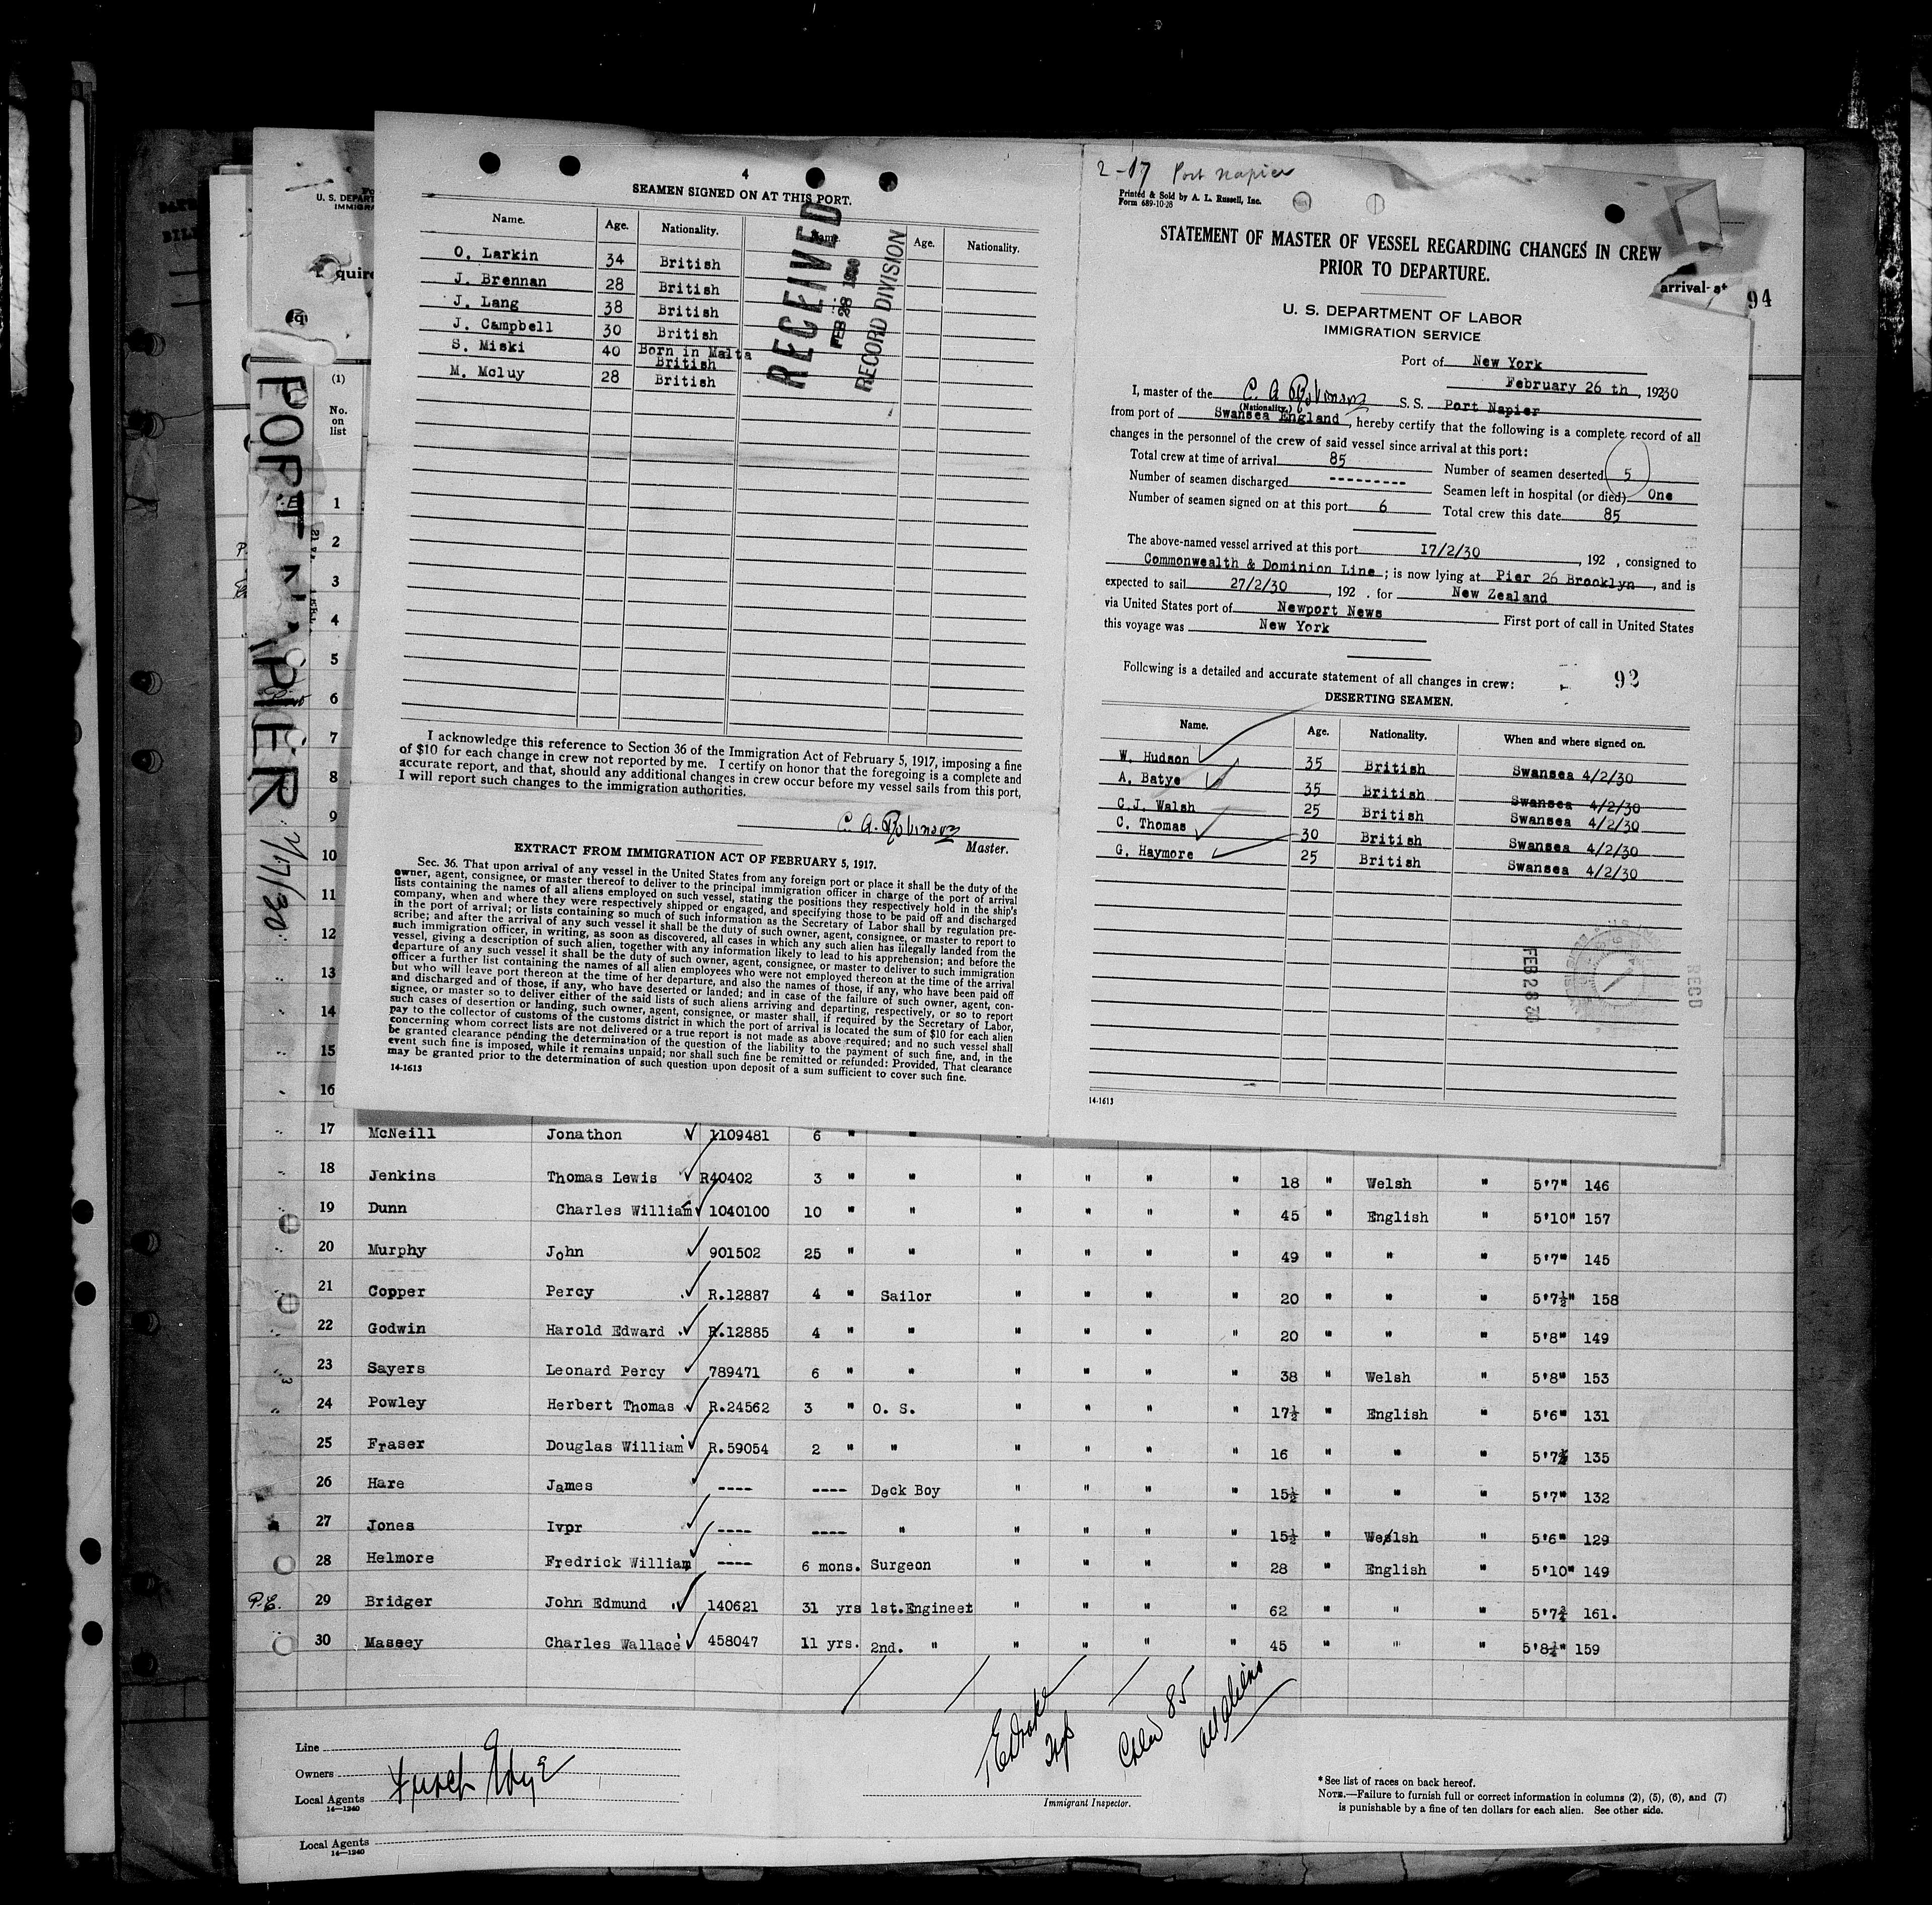 4
SEAMEN SIGNED ON AT THIS PORT.
Name. Age. Nationality. Name. Age. Nationality.
O. Larkin 34 British
J. Brennan 28 British
J. Lang 38 British
J. Campbell 30 British
S. Miski 40 Born in Malta
British
M. Mcluy 28 British
RECEIVED
FEB 28 1930
RECORD DIVISION
I acknowledge this reference to Section 36 of the Immigration Act of February 5, 1917, imposing a fine
of $10 for each change in crew not reported by me. I certify on honor that the foregoing is a complete and
accurate report, and that, should any additional changes in crew occur before my vessel sails from this port,
I will report such changes to the immigration authorities.
C. A. Robinson
Master.
EXTRACT FROM IMMIGRATION ACT OF FEBRUARY 5, 1917.
Sec. 36. That upon arrival of any vessel in the United States from any foreign port or place it shall be the duty of the
owner, agent, consignee, or master thereof to deliver to the principal immigration officer in charge of the port of arrival
lists containing the names of all aliens employed on such vessel, stating the positions they respectively hold in the ship's
company, when and where they were respectively shipped or engaged, and specifying those to be paid off and discharged
in the port of arrival; or lists containing so much of such information as the Secretary of Labor shall by regulation pre-
scribe; and after the arrival of any such vessel it shall be the duty of such owner, agent, consignee, or master to report to
such immigration officer, in writing, as soon as discovered, all cases in which any such alien has illegally landed from the
vessel, giving a description of such alien, together with any information likely to lead to his apprehension; and before the
departure of any such vessel it shall be the duty of such owner, agent, consignee, or master to deliver to such immigration
officer a further list containing the names of all alien employees who were not employed thereon at the time of the arrival
but who will leave port thereon at the time of her departure, and also the names of those, if any, who have been paid off
and discharged and of those, if any, who have deserted or landed; and in case of the failure of such owner, agent, con-
signee, or master so to deliver either of the said lists of such aliens arriving and departing, respectively, or so to report
such cases of desertion or landing, such owner, agent, consignee, or master shall, if required by the Secretary of Labor,
pay to the collector of customs of the customs district in which the port of arrival is located the sum of $10 for each alien
concerning whom correct lists are not delivered or a true report is not made as above required; and no such vessel shall
be granted clearance pending the determination of the question of the liability to the payment of such fine, and, in the
event such fine is imposed, while it remains unpaid; nor shall such fine be remitted or refunded: Provided, That clearance
may be granted prior to the determination of such question upon deposit of a sum sufficient to cover such fine.
14-1613
2-17 Port Napier
Printed & Sold by A. L. Russell, Inc.
Form 689-10-28
STATEMENT OF MASTER OF VESSEL REGARDING CHANGES IN CREW
PRIOR TO DEPARTURE.
arrival at 94
U. S. DEPARTMENT OF LABOR
IMMIGRATION SERVICE
Port of New York
February 26 th, 1930
I, master of the C. A. Robinson S. S. Port Napier
(Nationality.)
from port of Swansea England, hereby certify that the following is a complete record of all
changes in the personnel of the crew of said vessel since arrival at this port:
Total crew at time of arrival 85 Number of seamen deserted 5
Number of seamen discharged --------- Seamen left in hospital (or died) One
Number of seamen signed on at this port 6 Total crew this date 85
The above-named vessel arrived at this port 17/2/30, 192 , consigned to
Commonwealth & Dominion Line; is now lying at Pier 26 Brooklyn, and is
expected to sail 27/2/30, 192 . for New Zealand
via United States port of Newport News First port of call in United States
this voyage was New York
Following is a detailed and accurate statement of all changes in crew: 92
DESERTING SEAMEN.
Name. Age. Nationality. When and where signed on.
W. Hudson 35 British Swansea 4/2/30
A. Batye 35 British Swansea 4/2/30
C.J. Walsh 25 British Swansea 4/2/30
C. Thomas 30 British Swansea 4/2/30
G. Haymore 25 British Swansea 4/2/30
FEB 28 30
REC'D
14-1613
U. S. DEPART
IMMIGRA
quire
PORT NAPIER 2/17/30
(1)
No.
on
list
1
2
3
4
5
6
7
8
9
10
11
12
13
14
15
16
17 McNeill Jonathon 1109481 6 " "
18 Jenkins Thomas Lewis R40402 3 " " " " " " 18 " Welsh " 5'7" 146
19 Dunn Charles William 1040100 10 " " " " " " 45 " English " 5'10" 157
20 Murphy John 901502 25 " " " " " " 49 " " " 5'7" 145
21 Copper Percy R.12887 4 " Sailor " " " " 20 " " " 5'7½" 158
22 Godwin Harold Edward R.12885 4 " " " " " " 20 " " " 5'8" 149
23 Sayers Leonard Percy 789471 6 " " " " " " 38 " Welsh " 5'8" 153
24 Powley Herbert Thomas R.24562 3 " O. S. " " " " 17½ " English " 5'6" 131
25 Fraser Douglas William R.59054 2 " " " " " " 16 " " " 5'7½ 135
26 Hare James ---- ---- Deck Boy " " " " 15½ " " " 5'7" 132
27 Jones Ivpr ---- ---- " " " " " 15½ " Welsh " 5'6" 129
28 Helmore Fredrick William ---- 6 mons. Surgeon " " " " 28 " English " 5'10" 149
P.E. 29 Bridger John Edmund 140621 31 yrs 1st.Engineet " " " " 62 " " " 5'7¾ 161.
30 Massey Charles Wallace 458047 11 yrs. 2nd. " " " " " 45 " " " 5'8½" 159
85
all aliens
Line
Owners
Local Agents
14-1240
Immigrant Inspector.
*See list of races on back hereof.
NOTE.—Failure to furnish full or correct information in columns (2), (5), (6), and (7)
is punishable by a fine of ten dollars for each alien. See other side.
Local Agents
14-1240